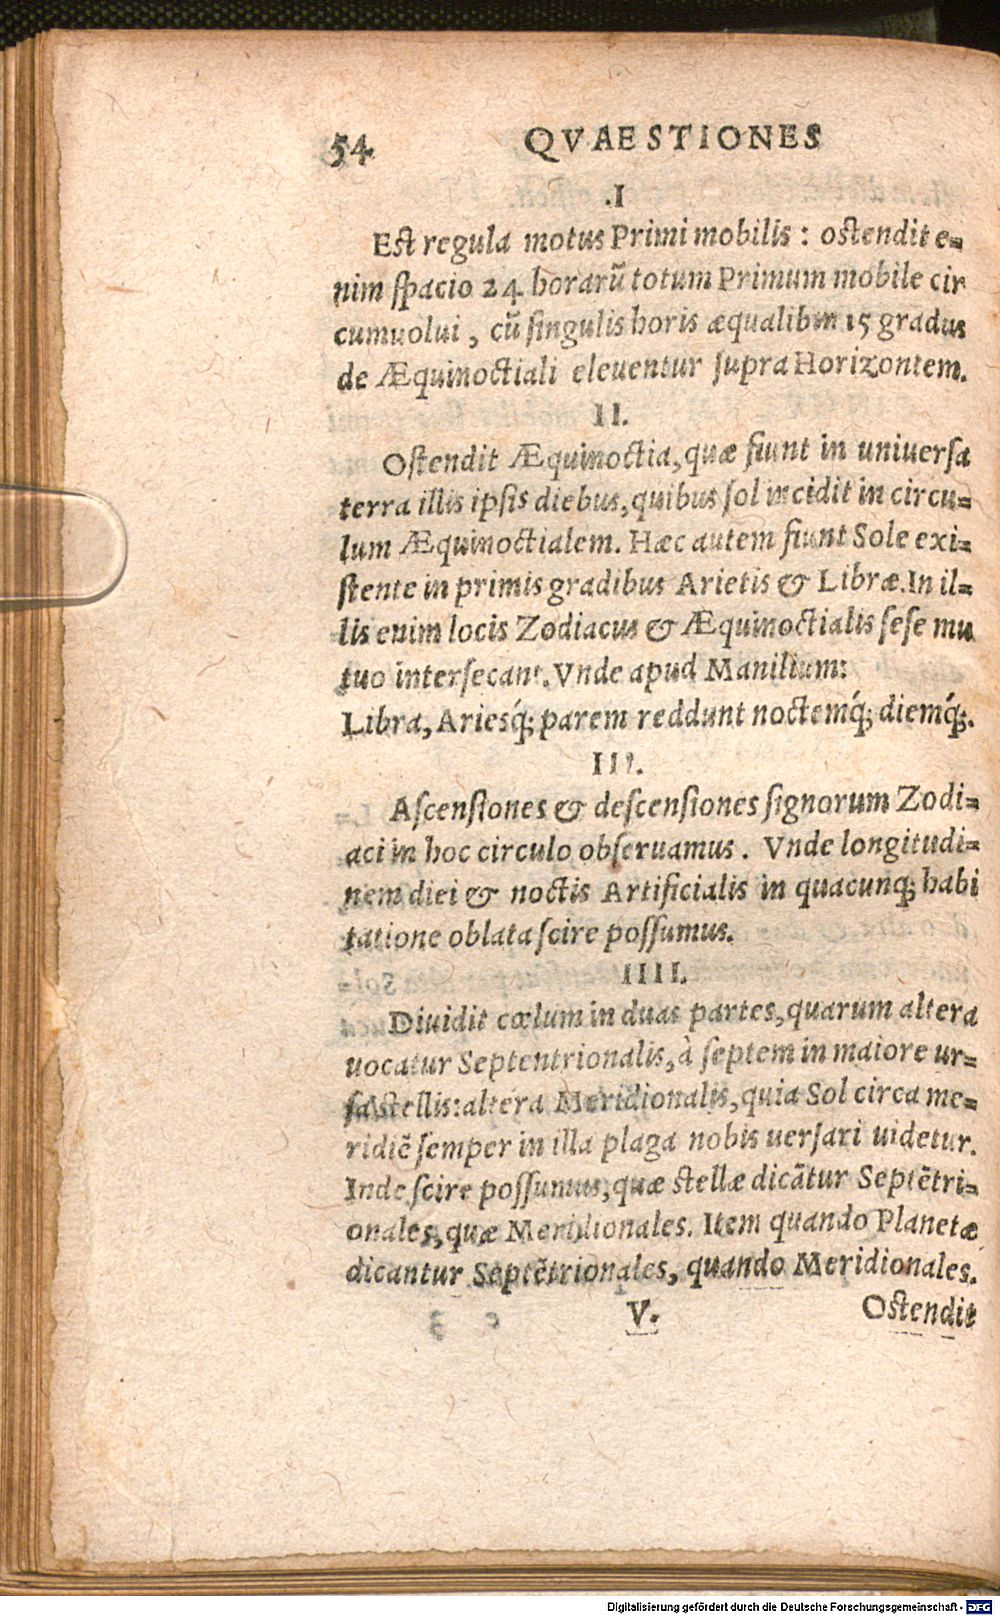 54 QVAESTIONES
.I
Est regula motus Primi mobilis : ostendit e=
nim spacio 24 horarũ totum Primum mobile cir
cumuolui, cũ singulis horis æqualibus 15 gradus
de Æquinoctiali eleuentur supra Horizontem.
II.
Ostendit Æquinoctia, quæ fiunt in uniuersa
terra illis ipsis diebus, quibus sol incidit in circu=
lum Æquinoctialem. Hæc autem fiunt Sole exi=
stente in primis gradibus Arietis & Libræ. In il=
lis enim locis Zodiacus & Æquinoctialis sese mu
tuo intersecant. Vnde apud Manilium:
Libra, Ariesq́; parem reddunt noctemq́; diemq́;.
III.
Ascensiones & descensiones signorum Zodi=
aci in hoc circulo obseruamus. Vnde longitudi=
nem diei & noctis Artificialis in quacunq; habi
tatione oblata scire possumus.
IIII.
Diuidit cœlum in duas partes, quarum altera
uocatur Septentrionalis, à septem in maiore ur=
sa stellis: altera Meridionalis, quia Sol circa me=
ridiẽ semper in illa plaga nobis uersari uidetur.
Inde scire possumus, quæ stellæ dicãtur Septẽtri=
onales, quæ Meridionales. Item quando Planetæ
dicantur Septẽtrionales, quando Meridionales.
V. Ostendit
Digitalisierung gefördert durch die Deutsche Forschungsgemeinschaft - DFG